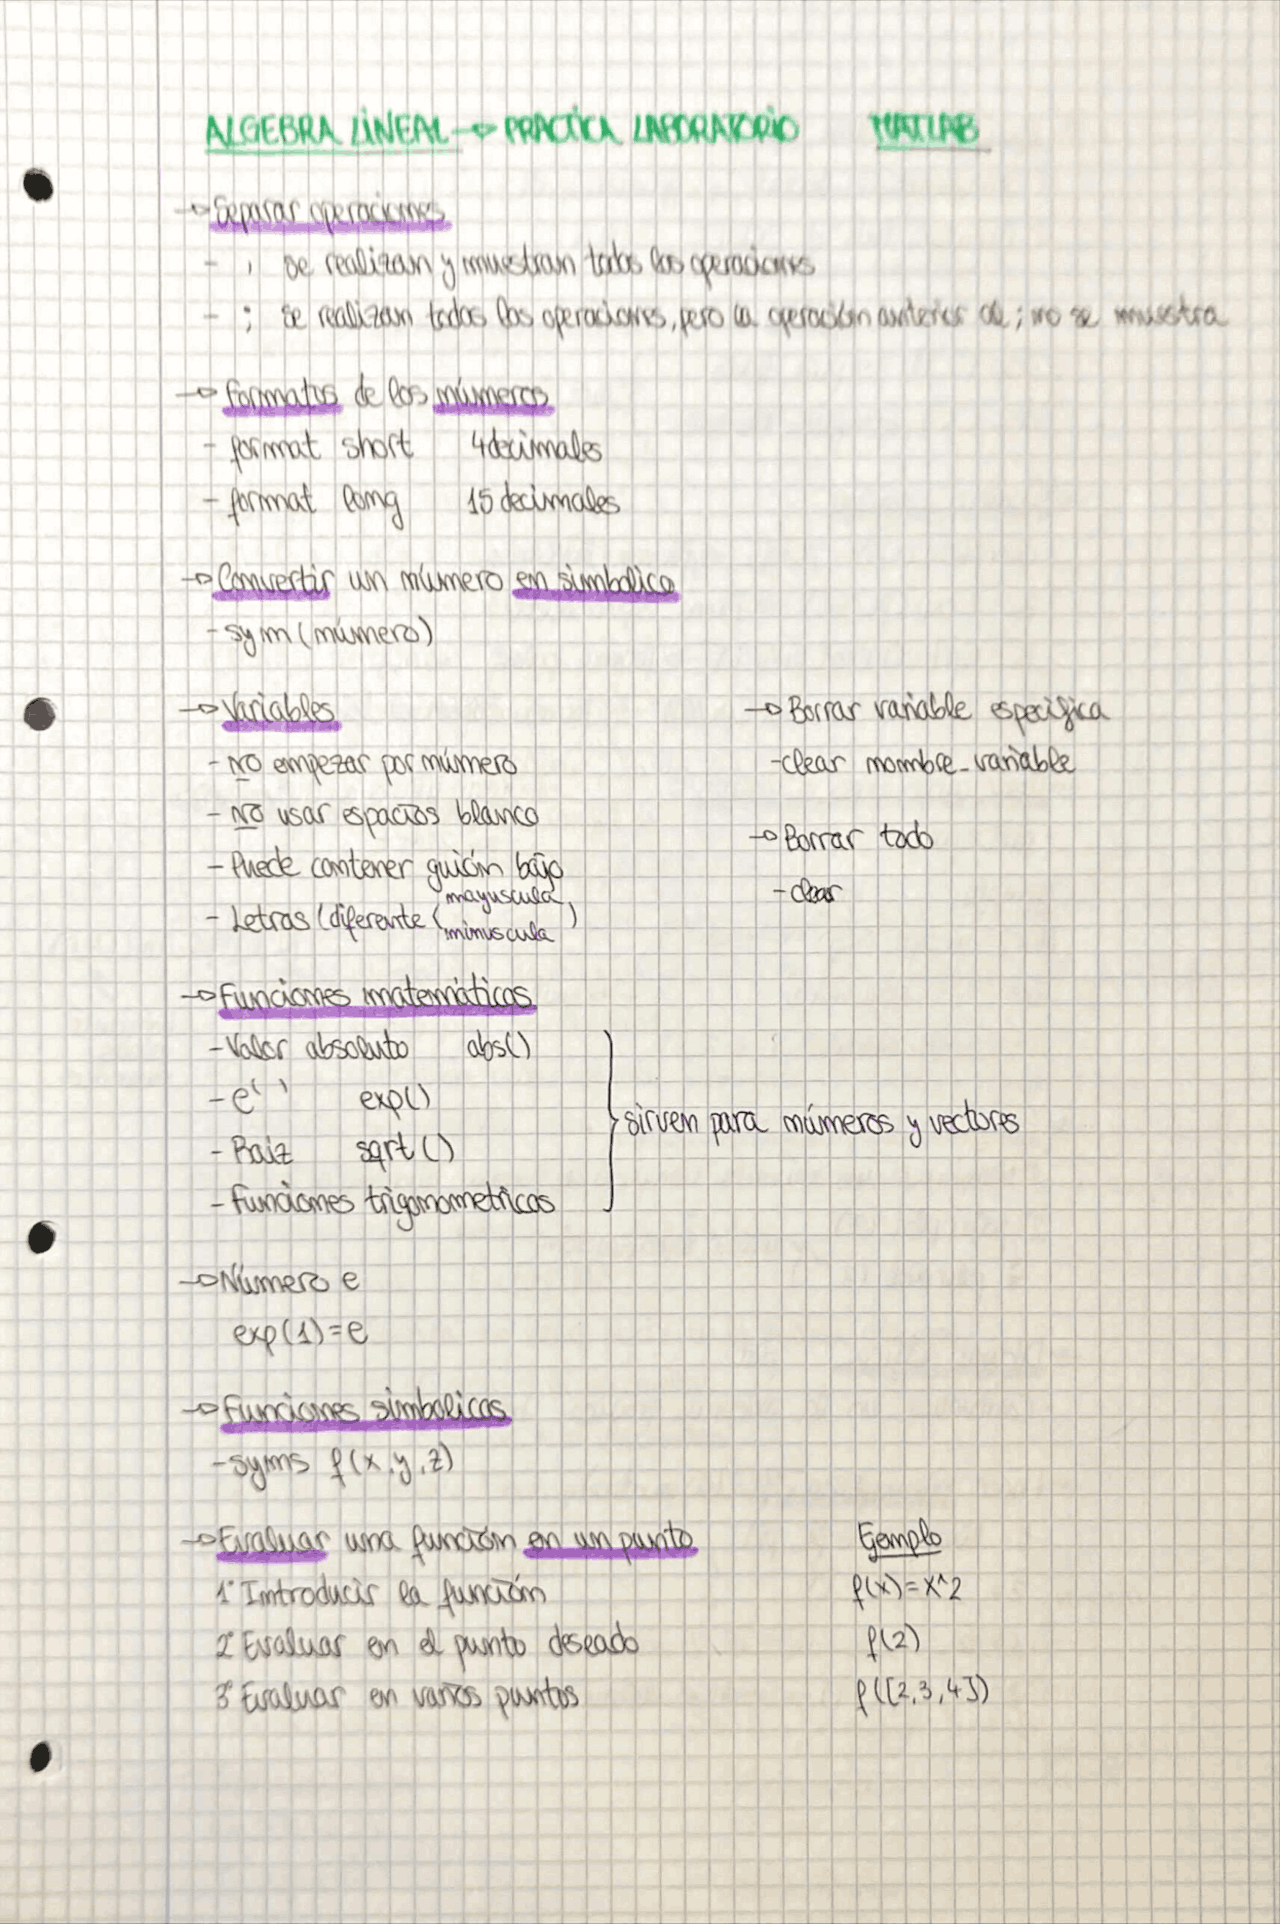 ALGEBRA LINEAL → PRACTICA LABORATORIO MATLAB
→ Separar operaciones
- , se realizan y muestran todas las operaciones
- ; se realizan todas las operaciones, pero la operación anterior al ; no se muestra
→ Formatos de los números
- format short 4 decimales
- format long 15 decimales
→ Convertir un número en simbolico
- sym(número)
→ Variables
- NO empezar por número
- NO usar espacios blanco
- Puede contener guión bajo
- Letras (diferente (mayuscula,
minuscula)
→ Borrar variable especifica
- clear nombre_variable
→ Borrar todo
- clear
→ Funciones matemáticas
- Valor absoluto abs()
- e^( ) exp()
- Raiz sqrt()
- Funciones trigonometricas
} sirven para números y vectores
→ Número e
exp(1)=e
→ Funciones simbolicas
- syms f(x,y,z)
→ Evaluar una función en un punto
1º Introducir la función
2º Evaluar en el punto deseado
3º Evaluar en varios puntos
Ejemplo
f(x)=x^2
f(2)
f([2,3,4])